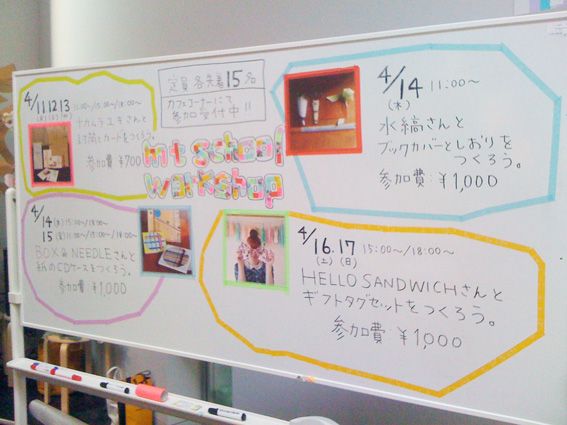 定員 各先着15名
カフェコーナーにて
参加受付中!!
mt school
workshop
4/11 12 13 11:00〜/15:00〜/18:00〜
ナカムラユキさんと
封筒とカードをつくろう。
参加費 ¥700
4/14 11:00〜
(木)
水縞さんと
ブックカバーとしおりを
つくろう。
参加費 ¥1,000
4/14(木) 15:00〜/18:00〜
15(金) 11:00〜/15:00〜/18:00〜
BOX & NEEDLEさんと
紙のCDケースをつくろう。
参加費 ¥1,000
4/16.17 15:00〜/18:00〜
(土)(日)
HELLO SANDWICHさんと
ギフトタグセットをつくろう。
参加費 ¥1,000